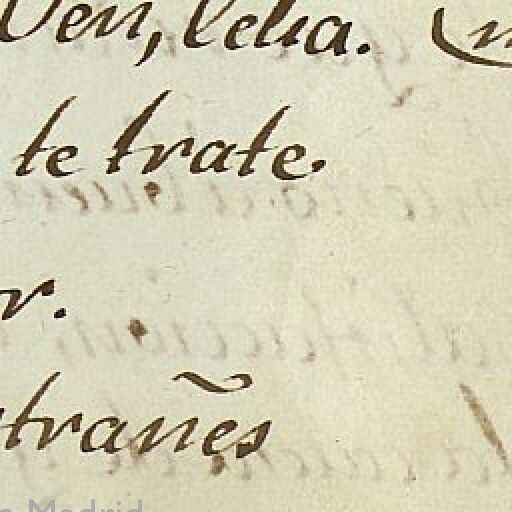 Ven, Celia.
te trate.
r.
strañes
Madrid